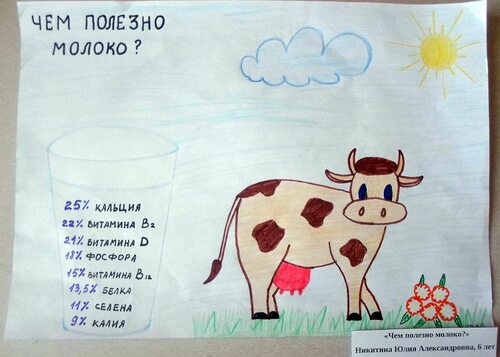 ЧЕМ ПОЛЕЗНО
МОЛОКО?
25% КАЛЬЦИЯ
22% ВИТАМИНА B2
21% ВИТАМИНА D
18% ФОСФОРА
15% ВИТАМИНА B12
13,5% БЕЛКА
11% СЕЛЕНА
9% КАЛИЯ
«Чем полезно молоко?»
Никитина Юлия Александровна, 6 лет